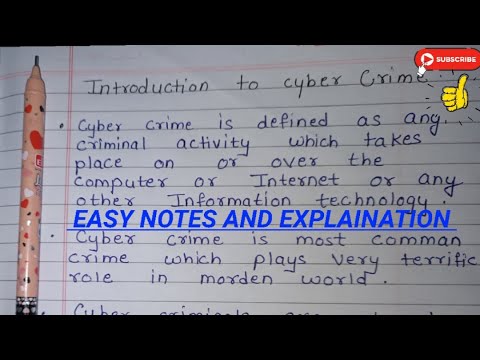 SUBSCRIBE
Introduction to cyber Crime.
• Cyber crime is defined as any
criminal activity which takes
place on or over the
computer or Internet or any
other Information technology.
EASY NOTES AND EXPLAINATION
• Cyber crime is most comman
crime which plays very terrific
role in morden world.
Cyber criminals